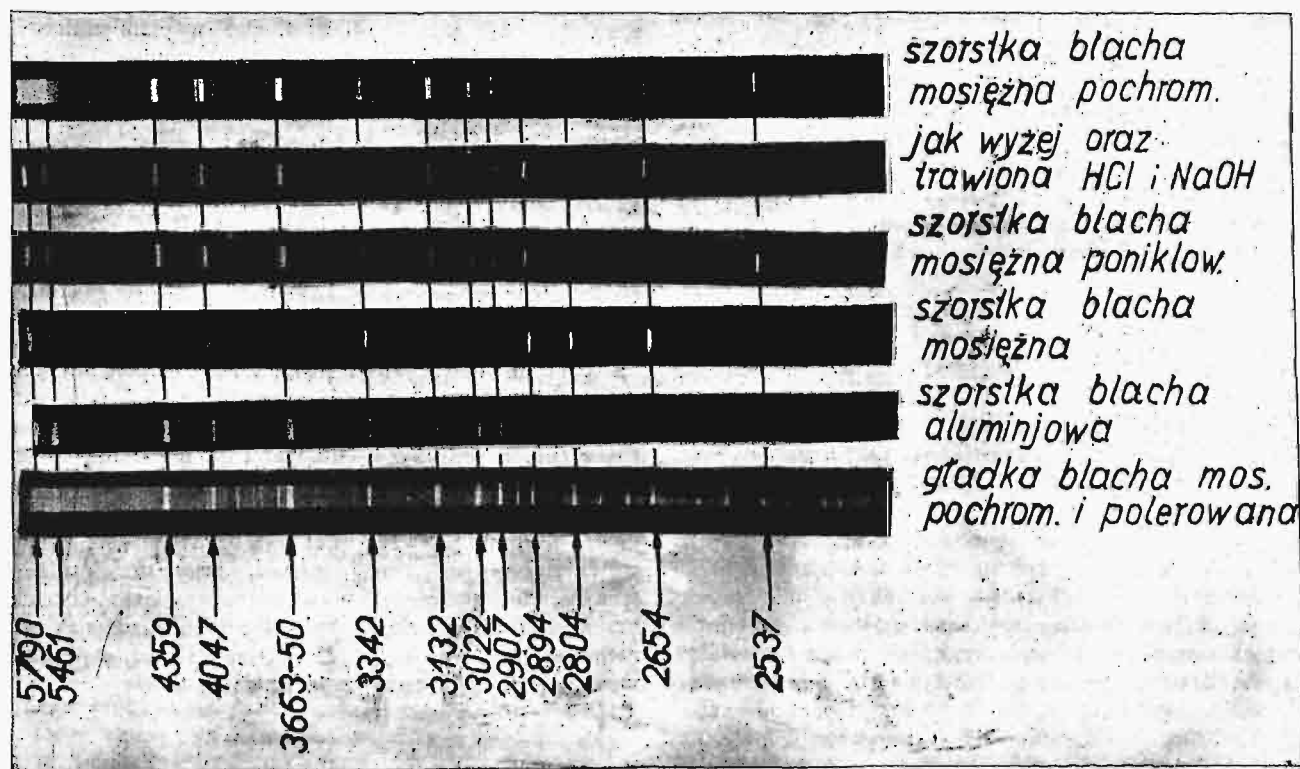 szorstka blacha
mosiężna pochrom.
jak wyżej oraz
trawiona HCl i NaOH
szorstka blacha
mosiężna poniklow.
szorstka blacha
mosiężna
szorstka blacha
aluminjowa
gładka blacha mos.
pochrom. i polerowana
5790
5461
4359
4047
3663-50
3342
3132
3022
2907
2894
2804
2654
2537